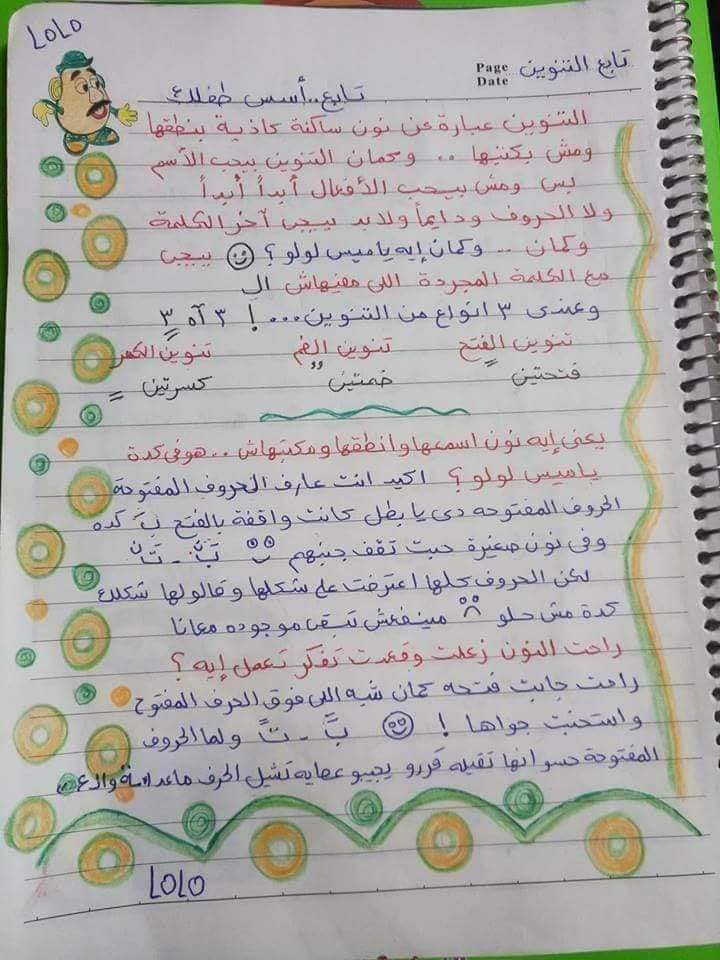 LOLO
تابع التنوين
Page
Date
تابع..أسس طفلك
التنوين عبارة عن نون ساكنة كاذبة بنطقها
ومش بكتبها .. وكمان التنوين بيحب الأسم
بس ومش بيحب الأفعال أبداً أبداً
ولا الحروف ودايماً ولابد بييجى آخر الكلمة
وكمان .. وكمان إيه ياميس لولو ؟ بيجب
مع الكلمة المجردة اللى مفيهاش ال
وعندى ٣ انواع من التنوين...! ٣ آه ٣
تنوين الفتح تنوين الضم تنوين الكسر
فتحتين ضمتين كسرتين
يعنى إيه نون اسمعها وانطقها ومكتبهاش .. هو فى كدة
ياميس لولو ؟ اكيد انت عارف الحروف المفتوحة
الحروف المفتوحه دى يا بطل كانت واقفة بالفتح بَ كده
وفى نون صغيرة حبت تقف جنبهم بَن - تَن
لكن الحروف كلها اعترضت على شكلها وقالولها شكلك
كدة مش حلو مينفعش تبقى موجوده معانا
راحت النون زعلت وقعدت تفكر تعمل إيه ؟
راحت جابت فتحه كمان شبه اللى فوق الحرف المفتوح
واستخبت جواها ! بً - تً ولما الحروف
المفتوحة حسوا انها تقيله قررو يجيبو عصايه تشيل الحرف ماعدا
LOLO